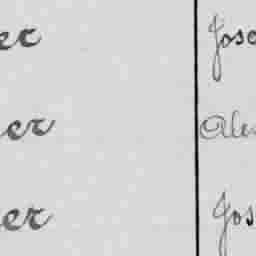 er Jose
er Ale
er Jos